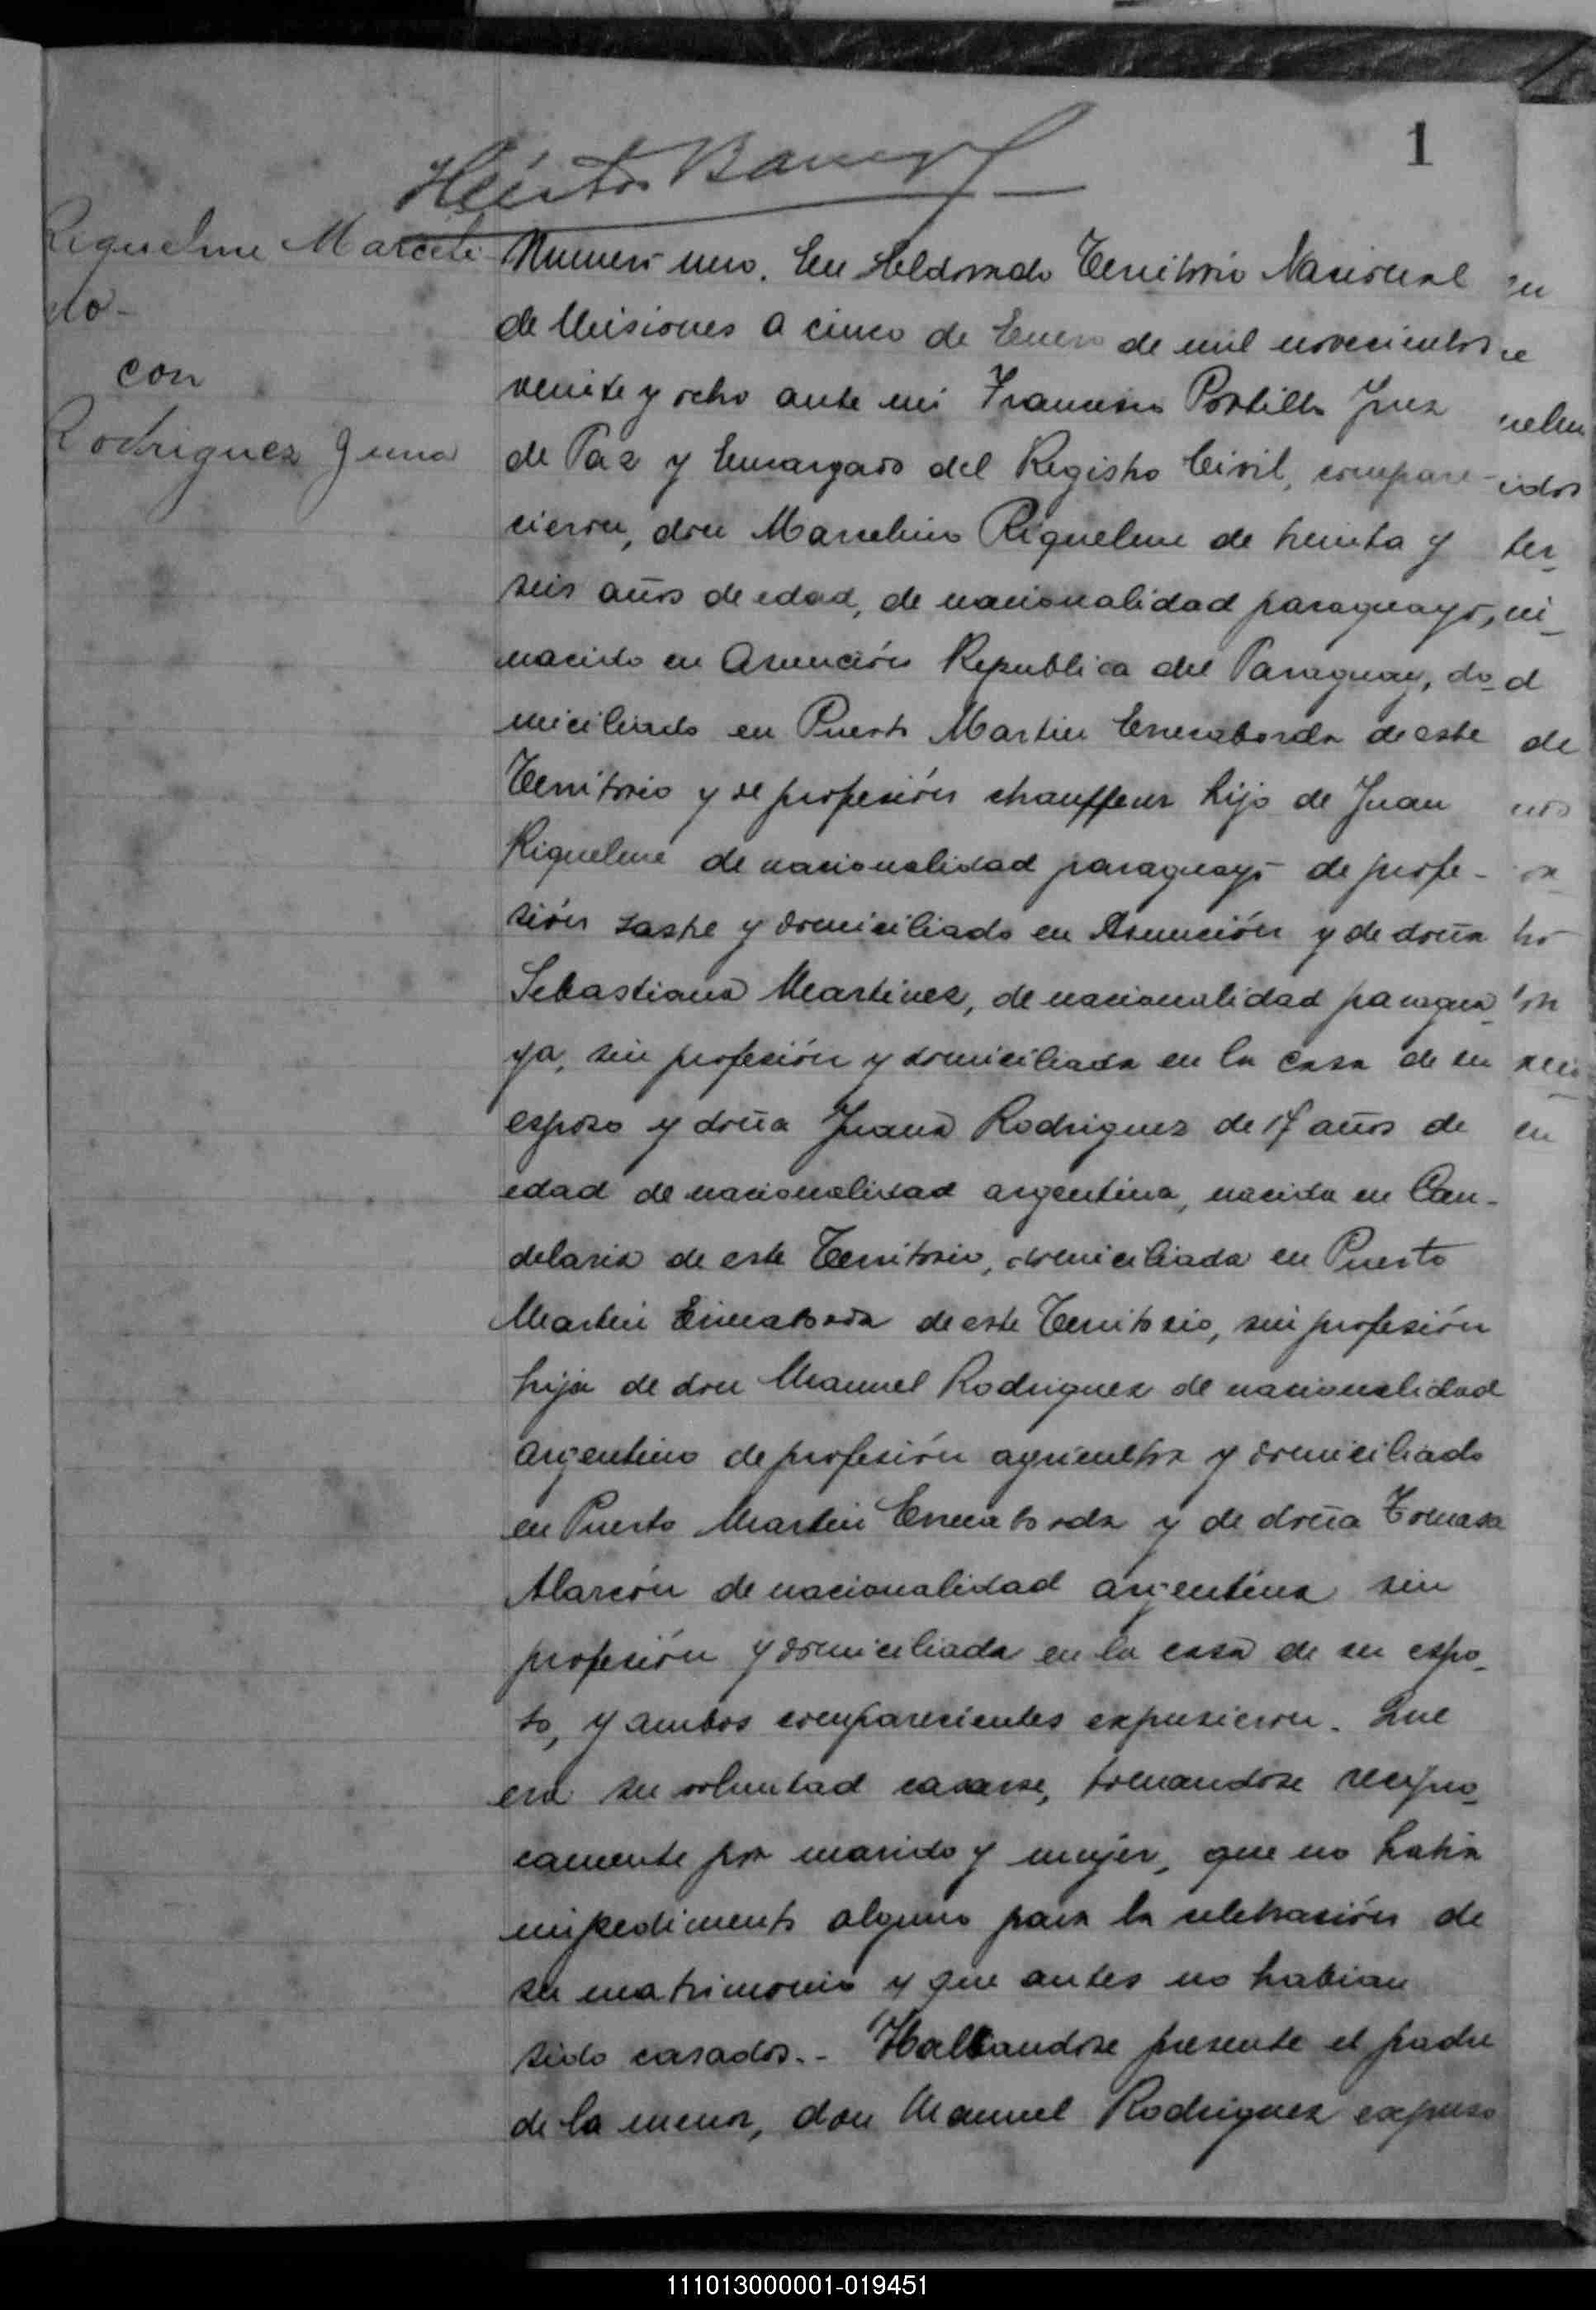 1
Riquelme Marceli-
no-
con
Rodriguez Juana
Numero uno. En Heldorado Territorio Nacional
de Misiones a cinco de Enero de mil novecientos
veinte y ocho ante mi Francisco Portillo Juez
de Paz y Encargado del Registro Civil, compare-
cieron, don Marcelino Riquelme de treinta y
seis años de edad, de nacionalidad paraguayo,
nacido en Asunción Republica del Paraguay, do-
miciliado en Puerto Martin Errecaborda de este
Territorio y de profesión chauffeur hijo de Juan
Riquelme de nacionalidad paraguayo de profe-
sión sastre y domiciliado en Asunción y de doña
Sebastiana Martinez, de nacionalidad paragua-
ya, sin profesión y domiciliada en la casa de su
esposo y doña Juana Rodriguez de 17 años de
edad de nacionalidad argentina, nacida en Can-
delaria de este Territorio, domiciliada en Puerto
Martin de este Territorio, sin profesión
hija de don Manuel Rodriguez de nacionalidad
argentino de profesión agricultor y domiciliado
en Puerto Martin y de doña Tomasa
Alarcón de nacionalidad argentina sin
profesión y domiciliada en la casa de su espo-
so, y ambos comparecientes expusieron. Que
era su voluntad casarse, tomandose recipro-
camente por marido y mujer, que no habia
impedimento alguno para la celebración de
su matrimonio y que antes no habian
sido casados.- Hallandose presente el padre
de la menor, don Manuel Rodriguez expuso
111013000001-019451